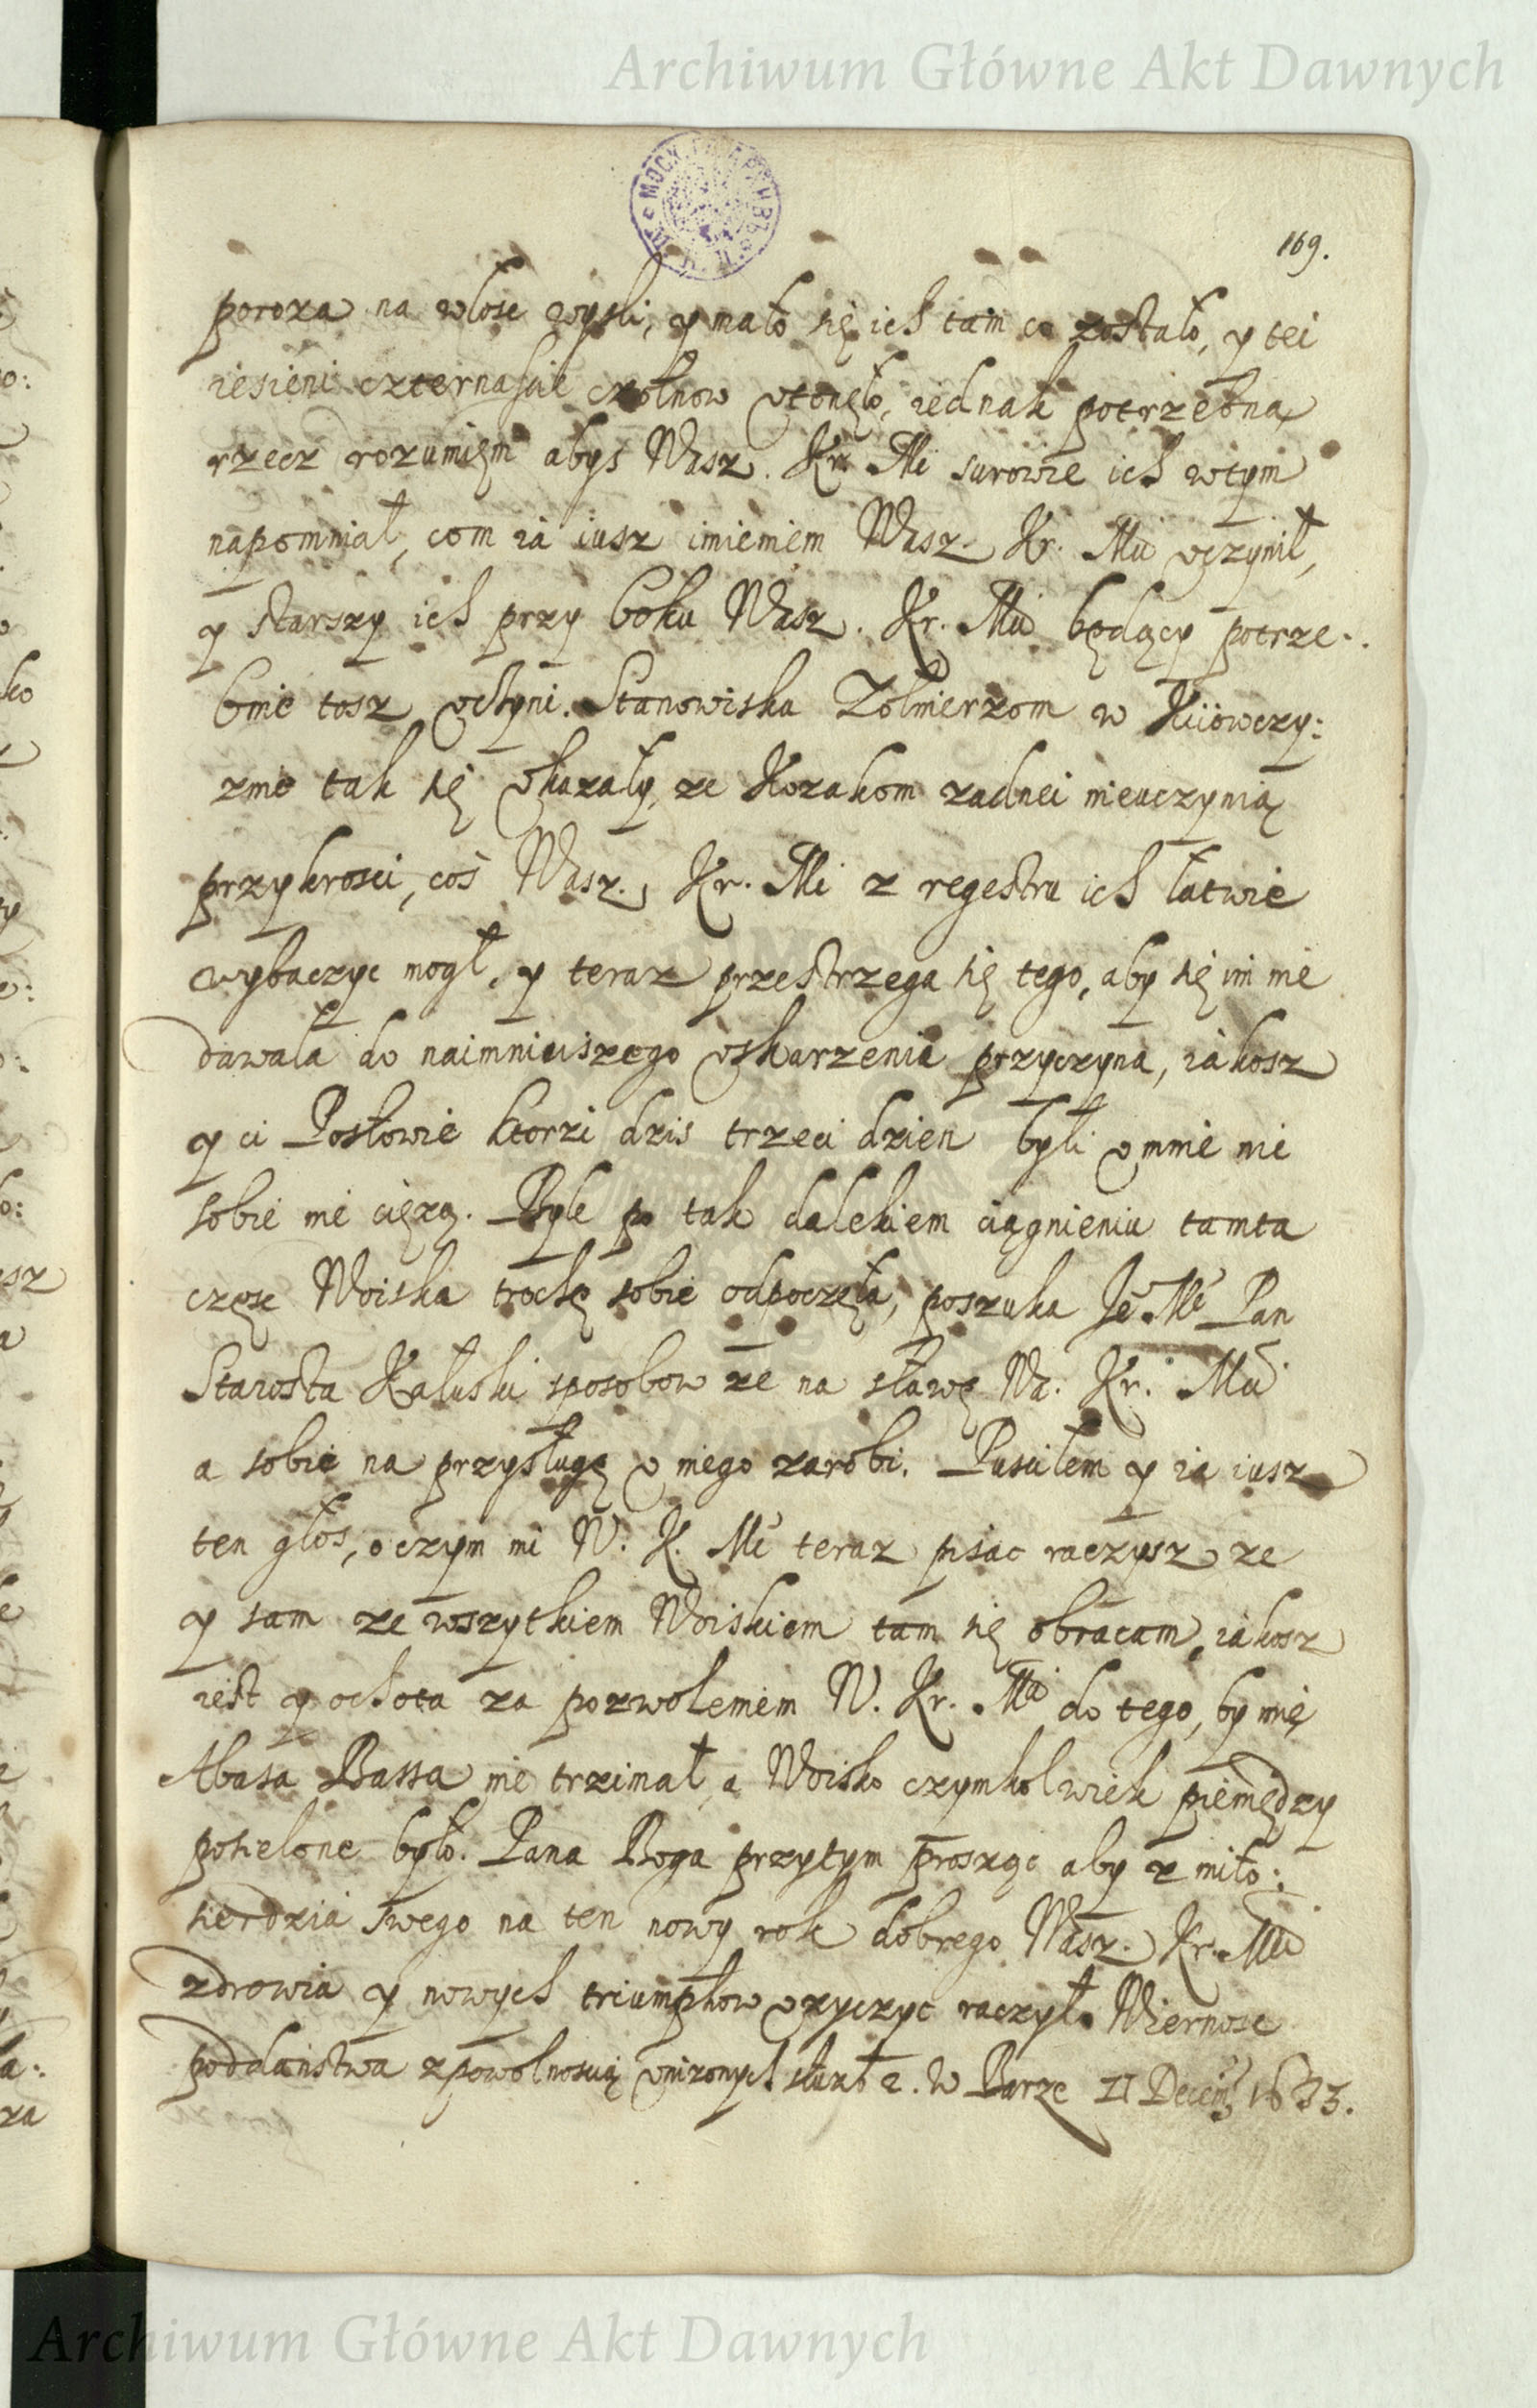 Archiwum Główne Akt Dawnych
169.
poroza na wlosc wysli, y mało się ich tam co zostało, y tei
iesieni czternascie czołnow utonęło, iednak potrzebną
rzecz rozumięm abys Wasz. Kr. Mć surowie ich wtym
napomniał, com ia iusz imieniem Wasz. Kr. Mći uczynił,
y starszy ich przy boku Wasz. Kr. Mći będący potrze:
bnie tosz uczyni. Stanowiska Zołnierzom w Kiiowczy:
znie tak się ukazały, ze Kozakom zadnei nieuczynią
przykrosci, coś Wasz. Kr. Mć z regestru ich łatwie
wybaczyc mogł, y teraz przestrzega się tego, aby się im nie
dawała do naimnieiszego uskarzenia przyczyna, iakosz
y ci Posłowie ktorzi dzis trzeci dzien byli u mnie nie
sobie nie cięzą. Byle po tak dalekiem ciągnieniu tamta
częsc Woiska trochę sobie odpoczęła, poszuka Je Mć Pan
Starosta Kałuski sposobow ze na sławę Wa. Kr. Mći
a sobie na przysługę u niego zarobi. Pusciłem y ia iusz
ten głos, o czym mi W. K. Mć teraz pisac raczysz ze
y sam ze wszytkiem Woiskiem tam się obracam, iakosz
iest y ochota za pozwoleniem W. Kr. Mći do tego, by mię
Abasa Bassa nie trzimał, a Woisko czymkolwiek pieniędzy
posielone było. Pana Boga przytym prosząc aby z miło:
sierdzia swego na ten nowy rok dobrego Wasz. Kr. Mći
zdrowia y nowych triumphow uzyczyc raczył. Wiernosc
poddaństwa z powolnoscią unizonych słuzb 2. W Barze II Decem 1633.
Archiwum Główne Akt Dawnych